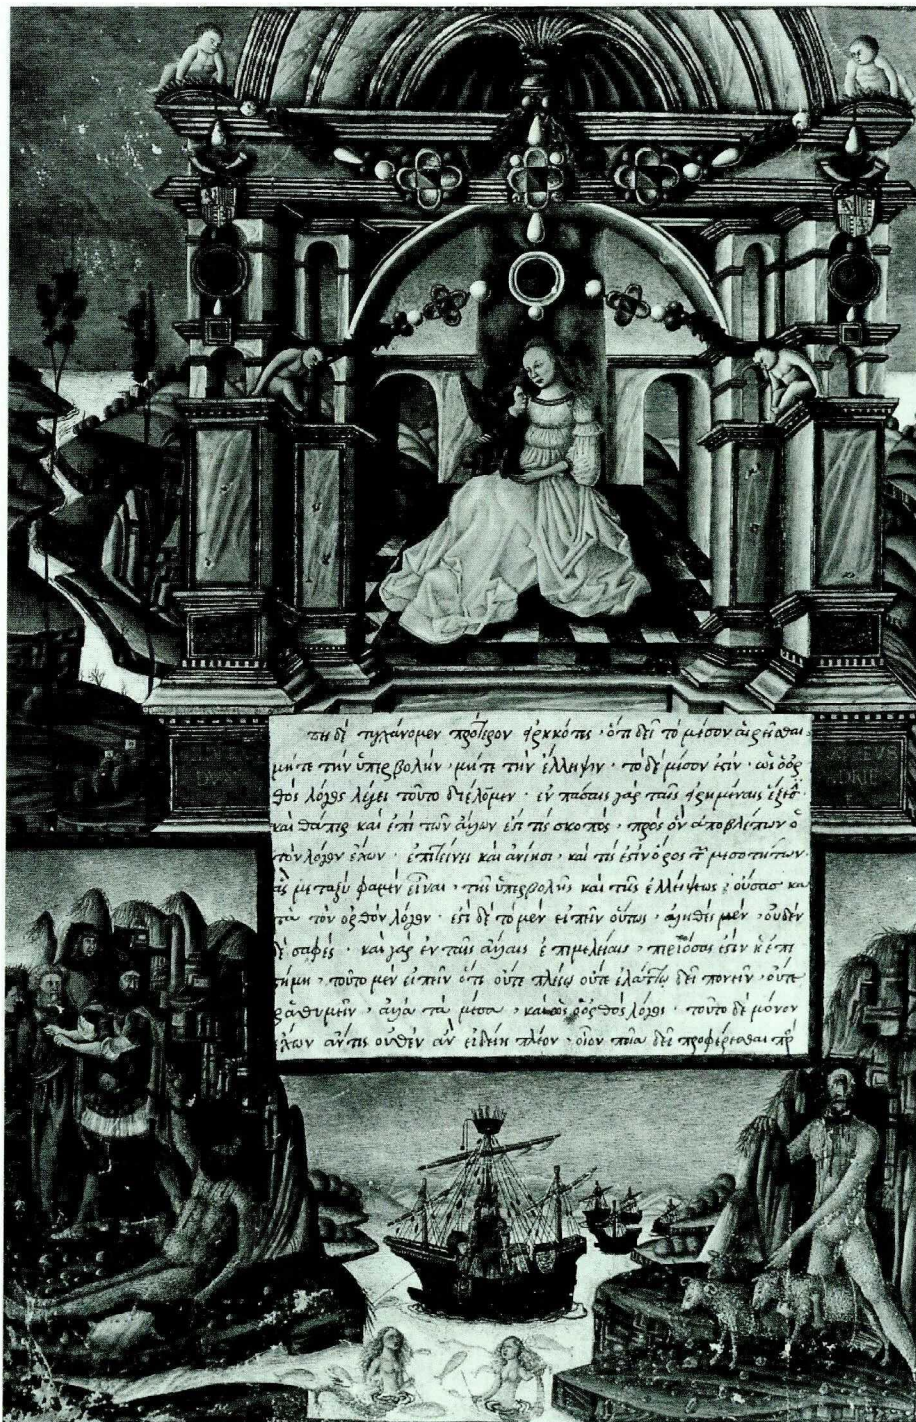 πεὶ δὲ τυγχάνομεν πρότερον εἰρηκότες · ὅτι δεῖ τὸ μέσον αἱρεῖσθαι ·
μήτε τὴν ὑπερβολὴν · μήτε τὴν ἔλλειψιν · τὸ δὲ μέσον ἐστὶν · ὡς ὁ ὀρ
θὸς λόγος λέγει τοῦτο διέλωμεν · ἐν πάσαις γὰρ ταῖς εἰρημέναις ἕξεσι
καθάπερ καὶ ἐπὶ τῶν ἄλλων ἔστι τις σκοπὸς · πρὸς ὃν ἀποβλέπων ὁ
τὸν λόγον ἔχων · ἐπιτείνει καὶ ἀνίησι · καὶ τίς ἐστιν ὅρος τῶν μεσοτήτων ·
ἃς μεταξύ φαμεν εἶναι · τῆς ὑπερβολῆς καὶ τῆς ἐλλείψεως · οὔσας κα
τὰ τὸν ὀρθὸν λόγον · ἔστι δὲ τὸ μὲν εἰπεῖν οὕτως · ἀληθὲς μὲν · οὐδὲν
δὲ σαφές · καὶ γὰρ ἐν ταῖς ἄλλαις ἐπιμελείαις · περὶ ὅσας ἐστὶν ἡ ἐπι
στήμη · τοῦτο μὲν εἰπεῖν ὅτι οὔτε πλείω οὔτε ἐλάττω δεῖ πονεῖν · οὔτε
ῥᾳθυμεῖν · ἀλλὰ τὰ μέσα · καὶ ὡς ὁ ὀρθὸς λόγος · τοῦτο δὲ μόνον
ἔχων ἄν τις οὐθὲν ἂν εἰδείη πλέον · οἷον ποῖα δεῖ προσφέρεσθαι πρὸς